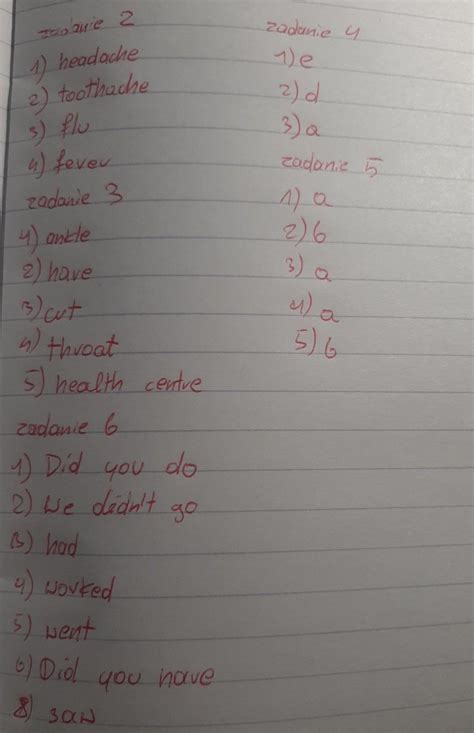 zadanie 2
1) headache
2) toothache
3) flu
4) fever
zadanie 3
1) ankle
2) have
3) cut
4) throat
5) health centre
zadanie 6
1) Did you do
2) We didn't go
3) had
4) worked
5) went
6) Did you have
8) saw
zadanie 4
1) e
2) d
3) a
zadanie 5
1) a
2) b
3) a
4) a
5) b